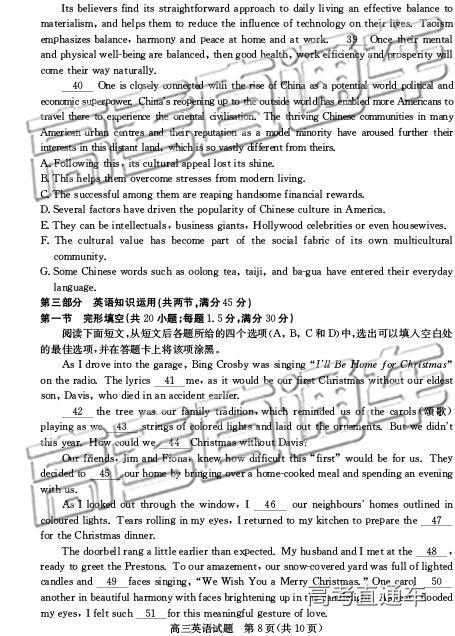 Its believers find its straightforward approach to daily living an effective balance to
materialism, and helps them to reduce the influence of technology on their lives. Taoism
emphasizes balance, harmony and peace at home and at work. 39 Once their mental
and physical well-being are balanced, then good health, work efficiency and prosperity will
come their way naturally.
40 One is closely connected with the rise of China as a potential world political and
economic superpower. China's reopening up to the outside world has enabled more Americans to
travel there to experience the oriental civilisation. The thriving Chinese communities in many
American urban centres and their reputation as a model minority have aroused further their
interests in this distant land, which is so vastly different from theirs.
A. Following this, its cultural appeal lost its shine.
B. This helps them overcome stresses from modern living.
C. The successful among them are reaping handsome financial rewards.
D. Several factors have driven the popularity of Chinese culture in America.
E. They can be intellectuals, business giants, Hollywood celebrities or even housewives.
F. The cultural value has become part of the social fabric of its own multicultural
community.
G. Some Chinese words such as oolong tea, taiji, and ba-gua have entered their everyday
language.
第三部分 英语知识运用(共两节,满分 45 分)
第一节 完形填空(共 20 小题;每题 1.5 分,满分 30 分)
阅读下面短文,从短文后各题所给的四个选项(A, B, C 和 D)中,选出可以填入空白处
的最佳选项,并在答题卡上将该项涂黑。
As I drove into the garage, Bing Crosby was singing "I'll Be Home for Christmas"
on the radio. The lyrics 41 me, as it would be our first Christmas without our eldest
son, Davis, who died in an accident earlier.
42 the tree was our family tradition, which reminded us of the carols(颂歌)
playing as we 43 strings of colored lights and laid out the ornaments. But we didn't
this year. How could we 44 Christmas without Davis?
Our friends, Jim and Fiona, knew how difficult this "first" would be for us. They
decided to 45 our home by bringing over a home-cooked meal and spending an evening
with us.
As I looked out through the window, I 46 our neighbours' homes outlined in
coloured lights. Tears rolling in my eyes, I returned to my kitchen to prepare the 47
for the Christmas dinner.
The doorbell rang a little earlier than expected. My husband and I met at the 48 ,
ready to greet the Prestons. To our amazement, our snow-covered yard was full of lighted
candles and 49 faces singing, "We Wish You a Merry Christmas." One carol 50
another in beautiful harmony with faces brightening up in the candlelight. As tears flooded
my eyes, I felt such 51 for this meaningful gesture of love.
高三英语试题 第 8 页(共 10 页)
高考直通车